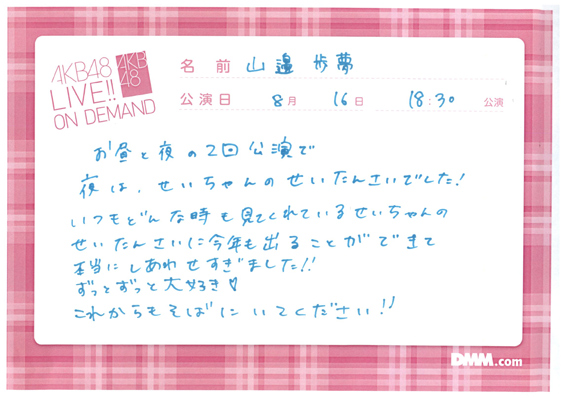 AKB48
LIVE!!
ON DEMAND
AKB
48
名前 山邉 歩夢
公演日 8月 16日 18:30 公演
お昼と夜の2回公演で
夜は、せいちゃんのせいたんさいでした!
いつもどんな時も見てくれているせいちゃんの
せいたんさいに今年も出ることができて
本当にしあわせすぎました!!
ずっとずっと大好き♡
これからもそばにいてください!!
DMM.com